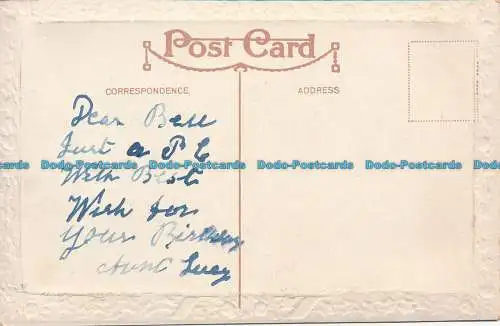 Post Card
CORRESPONDENCE.
ADDRESS
Dear Bell
Just a P C
With Best
Wish for
Your Birthday
Aunt Lucy
Dodo-Postcards Dodo-Postcards Dodo-Postcards Dodo-Postcards
Dodo-Postcards Dodo-Postcards Dodo-Postcards Dodo-Postcards